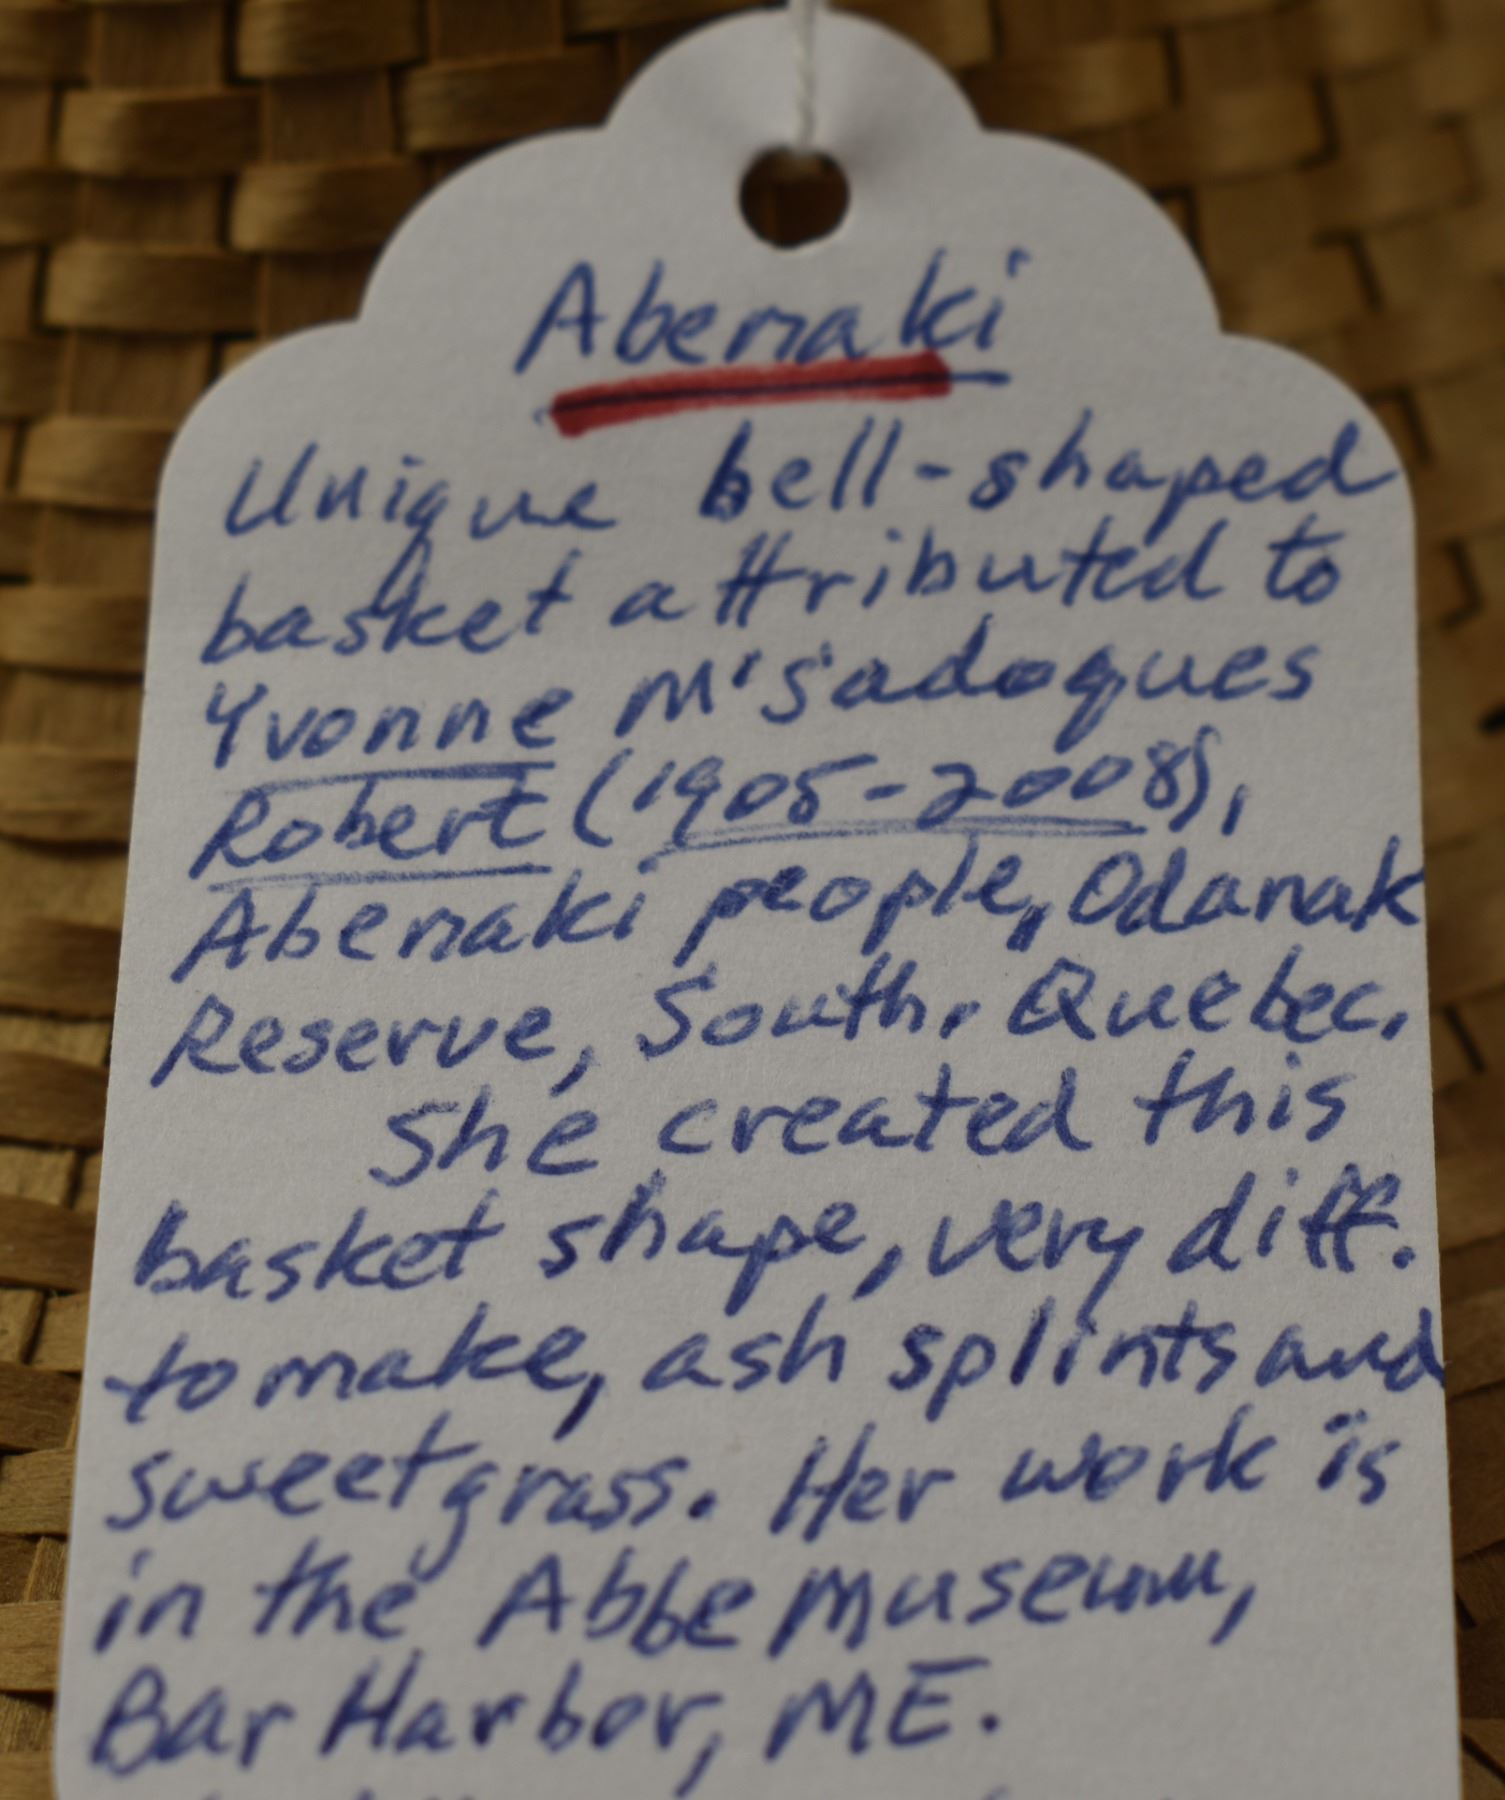 Abenaki
Unique bell-shaped
basket attributed to
Yvonne M'sadoques
Robert (1905-2008),
Abenaki people, Odanak
Reserve, South. Quebec.
She created this
basket shape, very diff.
to make, ash splints and
sweetgrass. Her work is
in the Abbe Museum,
Bar Harbor, ME.